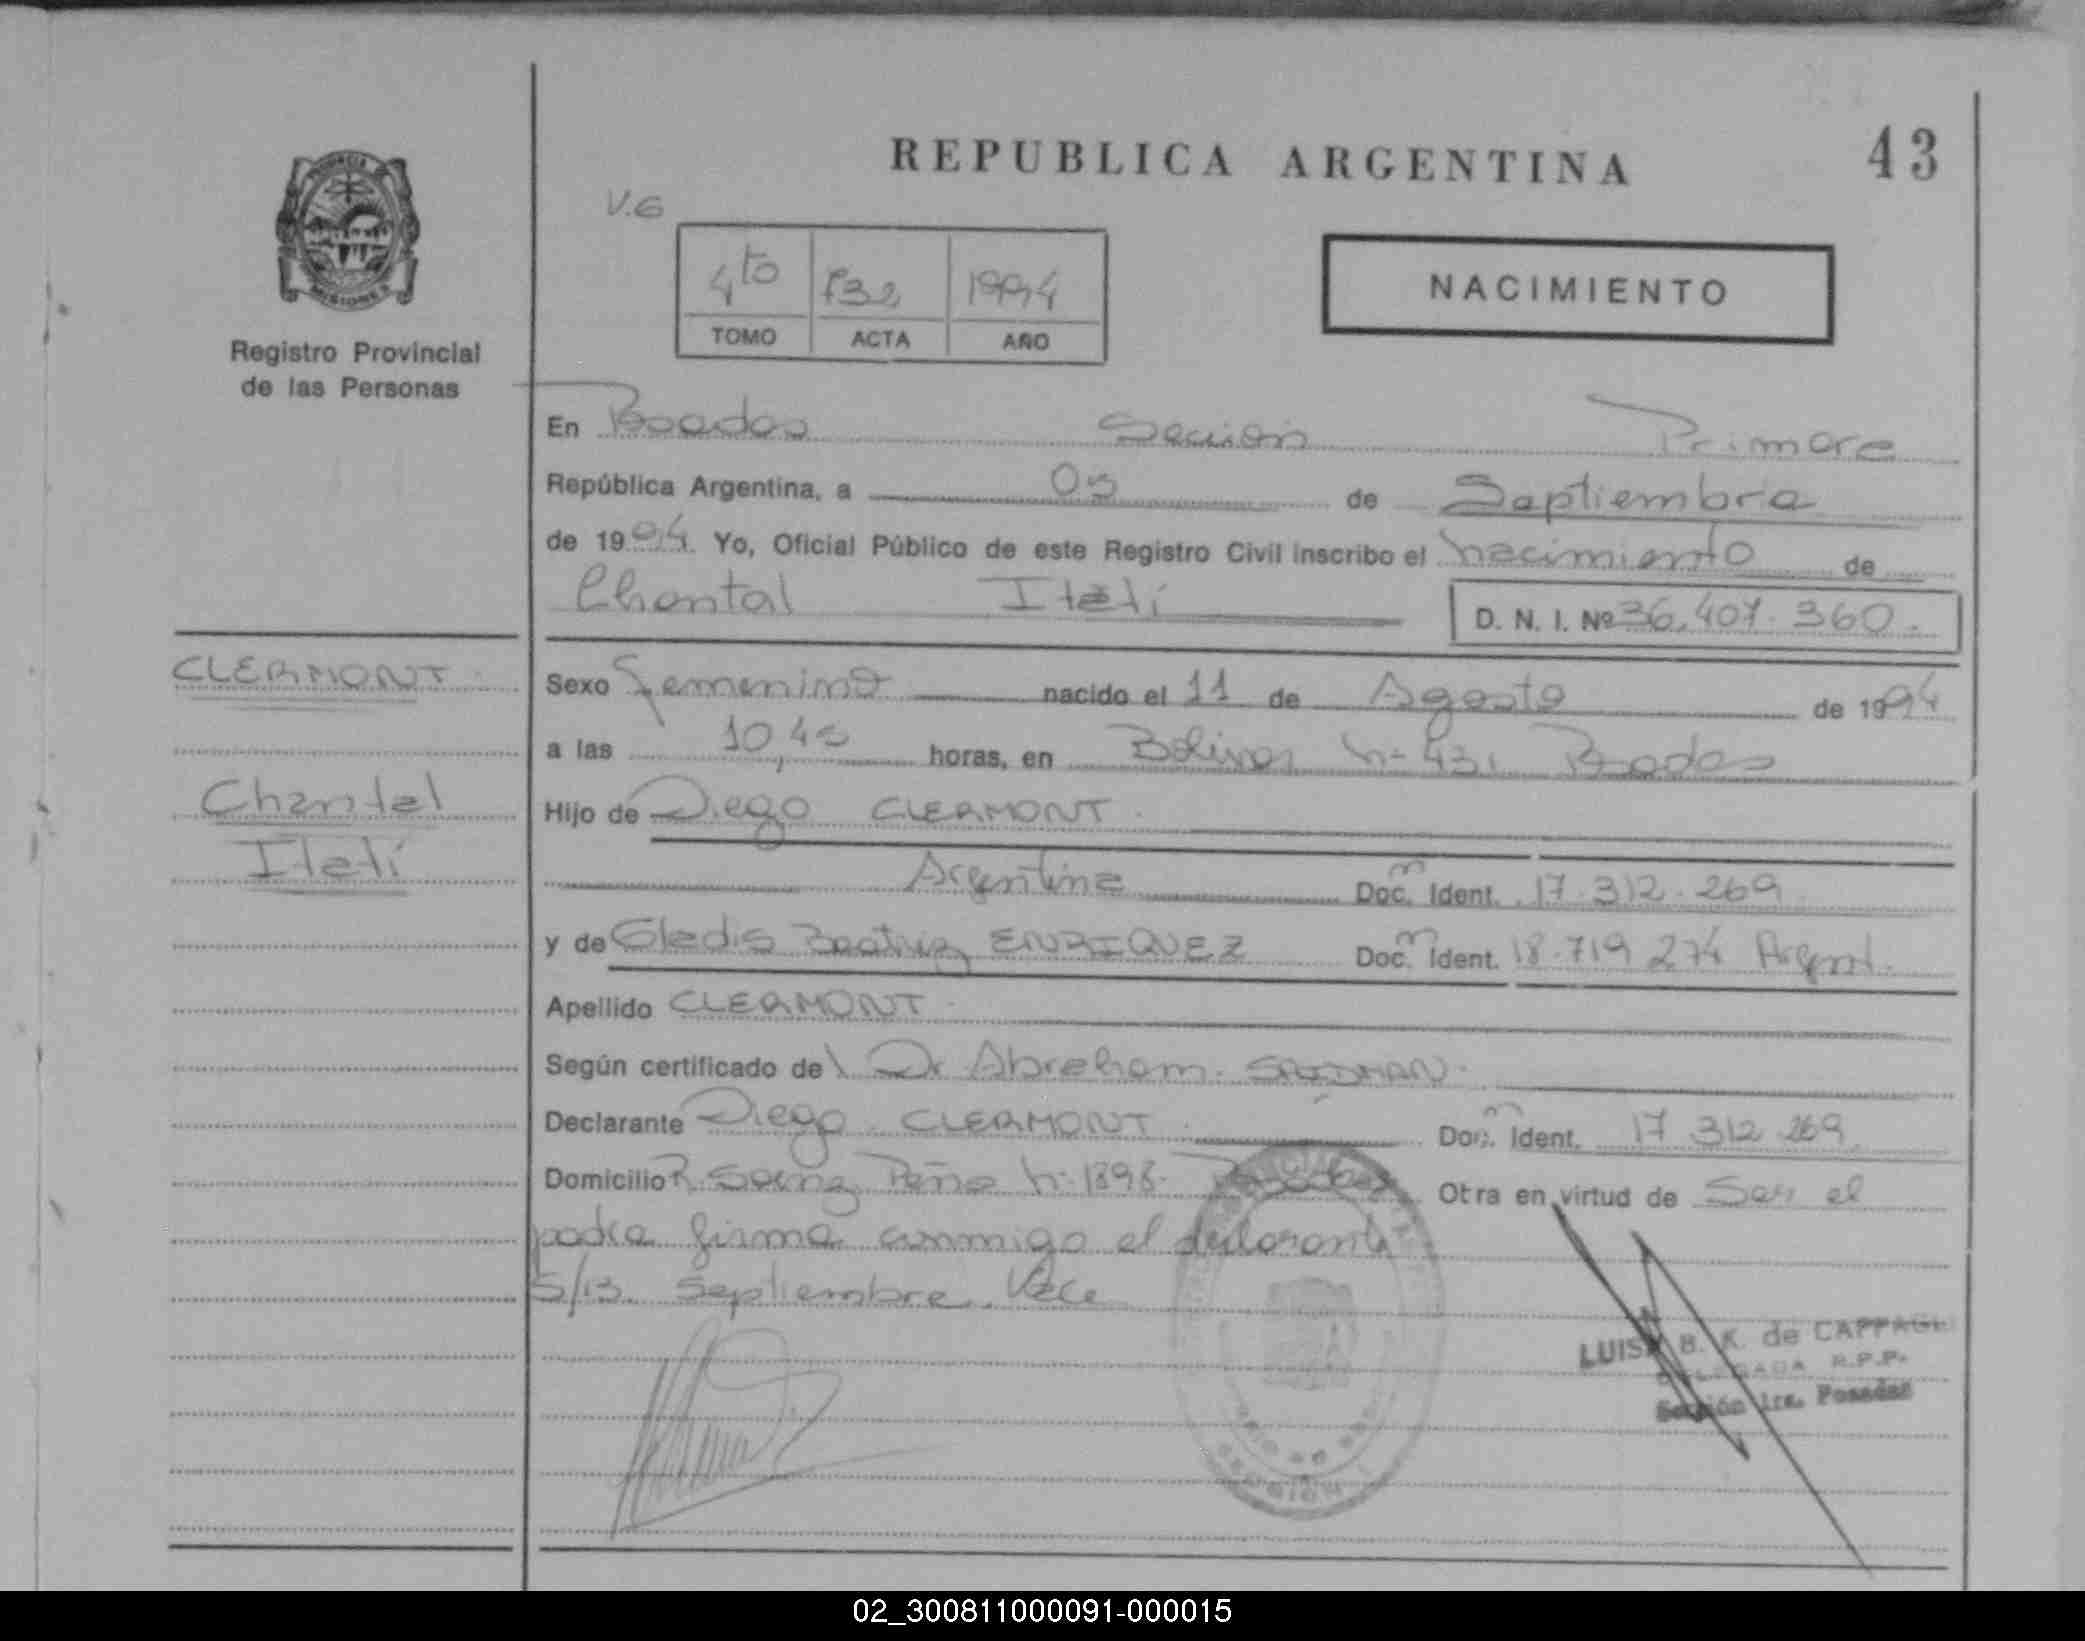 REPUBLICA ARGENTINA
43
V.6
4to 732 1994
TOMO ACTA AÑO
NACIMIENTO
PROVINCIA
MISIONES
Registro Provincial
de las Personas
En Posadas Sección Primera
República Argentina, a 05 de Septiembre
de 1994. Yo, Oficial Público de este Registro Civil inscribo el nacimiento de
Chantal Itatí
D. N. I. Nº 36.407.360.
CLERMONT.
Chantal
Itatí
Sexo femenino nacido el 11 de Agosto de 1994
a las 10,45 horas, en Bolivar n- 431 Posadas
Hijo de Diego CLERMONT.
Argentina Doc. Ident. 17.312.269
y de Gladis Beatriz ENRIQUEZ Doc. Ident. 18.719 274 Argent.
Apellido CLERMONT.
Según certificado del Dr Abraham
Declarante Diego CLERMONT. Doc. Ident. 17 312 269
Domicilio R. Saenz Peña n- 1898- Posadas Otra en virtud de Ser el
padre firma conmigo el declarante
5/13. Septiembre. Vale
LUISA B. K. de
DELEGADA R.P.P.
Sección 1ra. Posadas
02_300811000091-000015